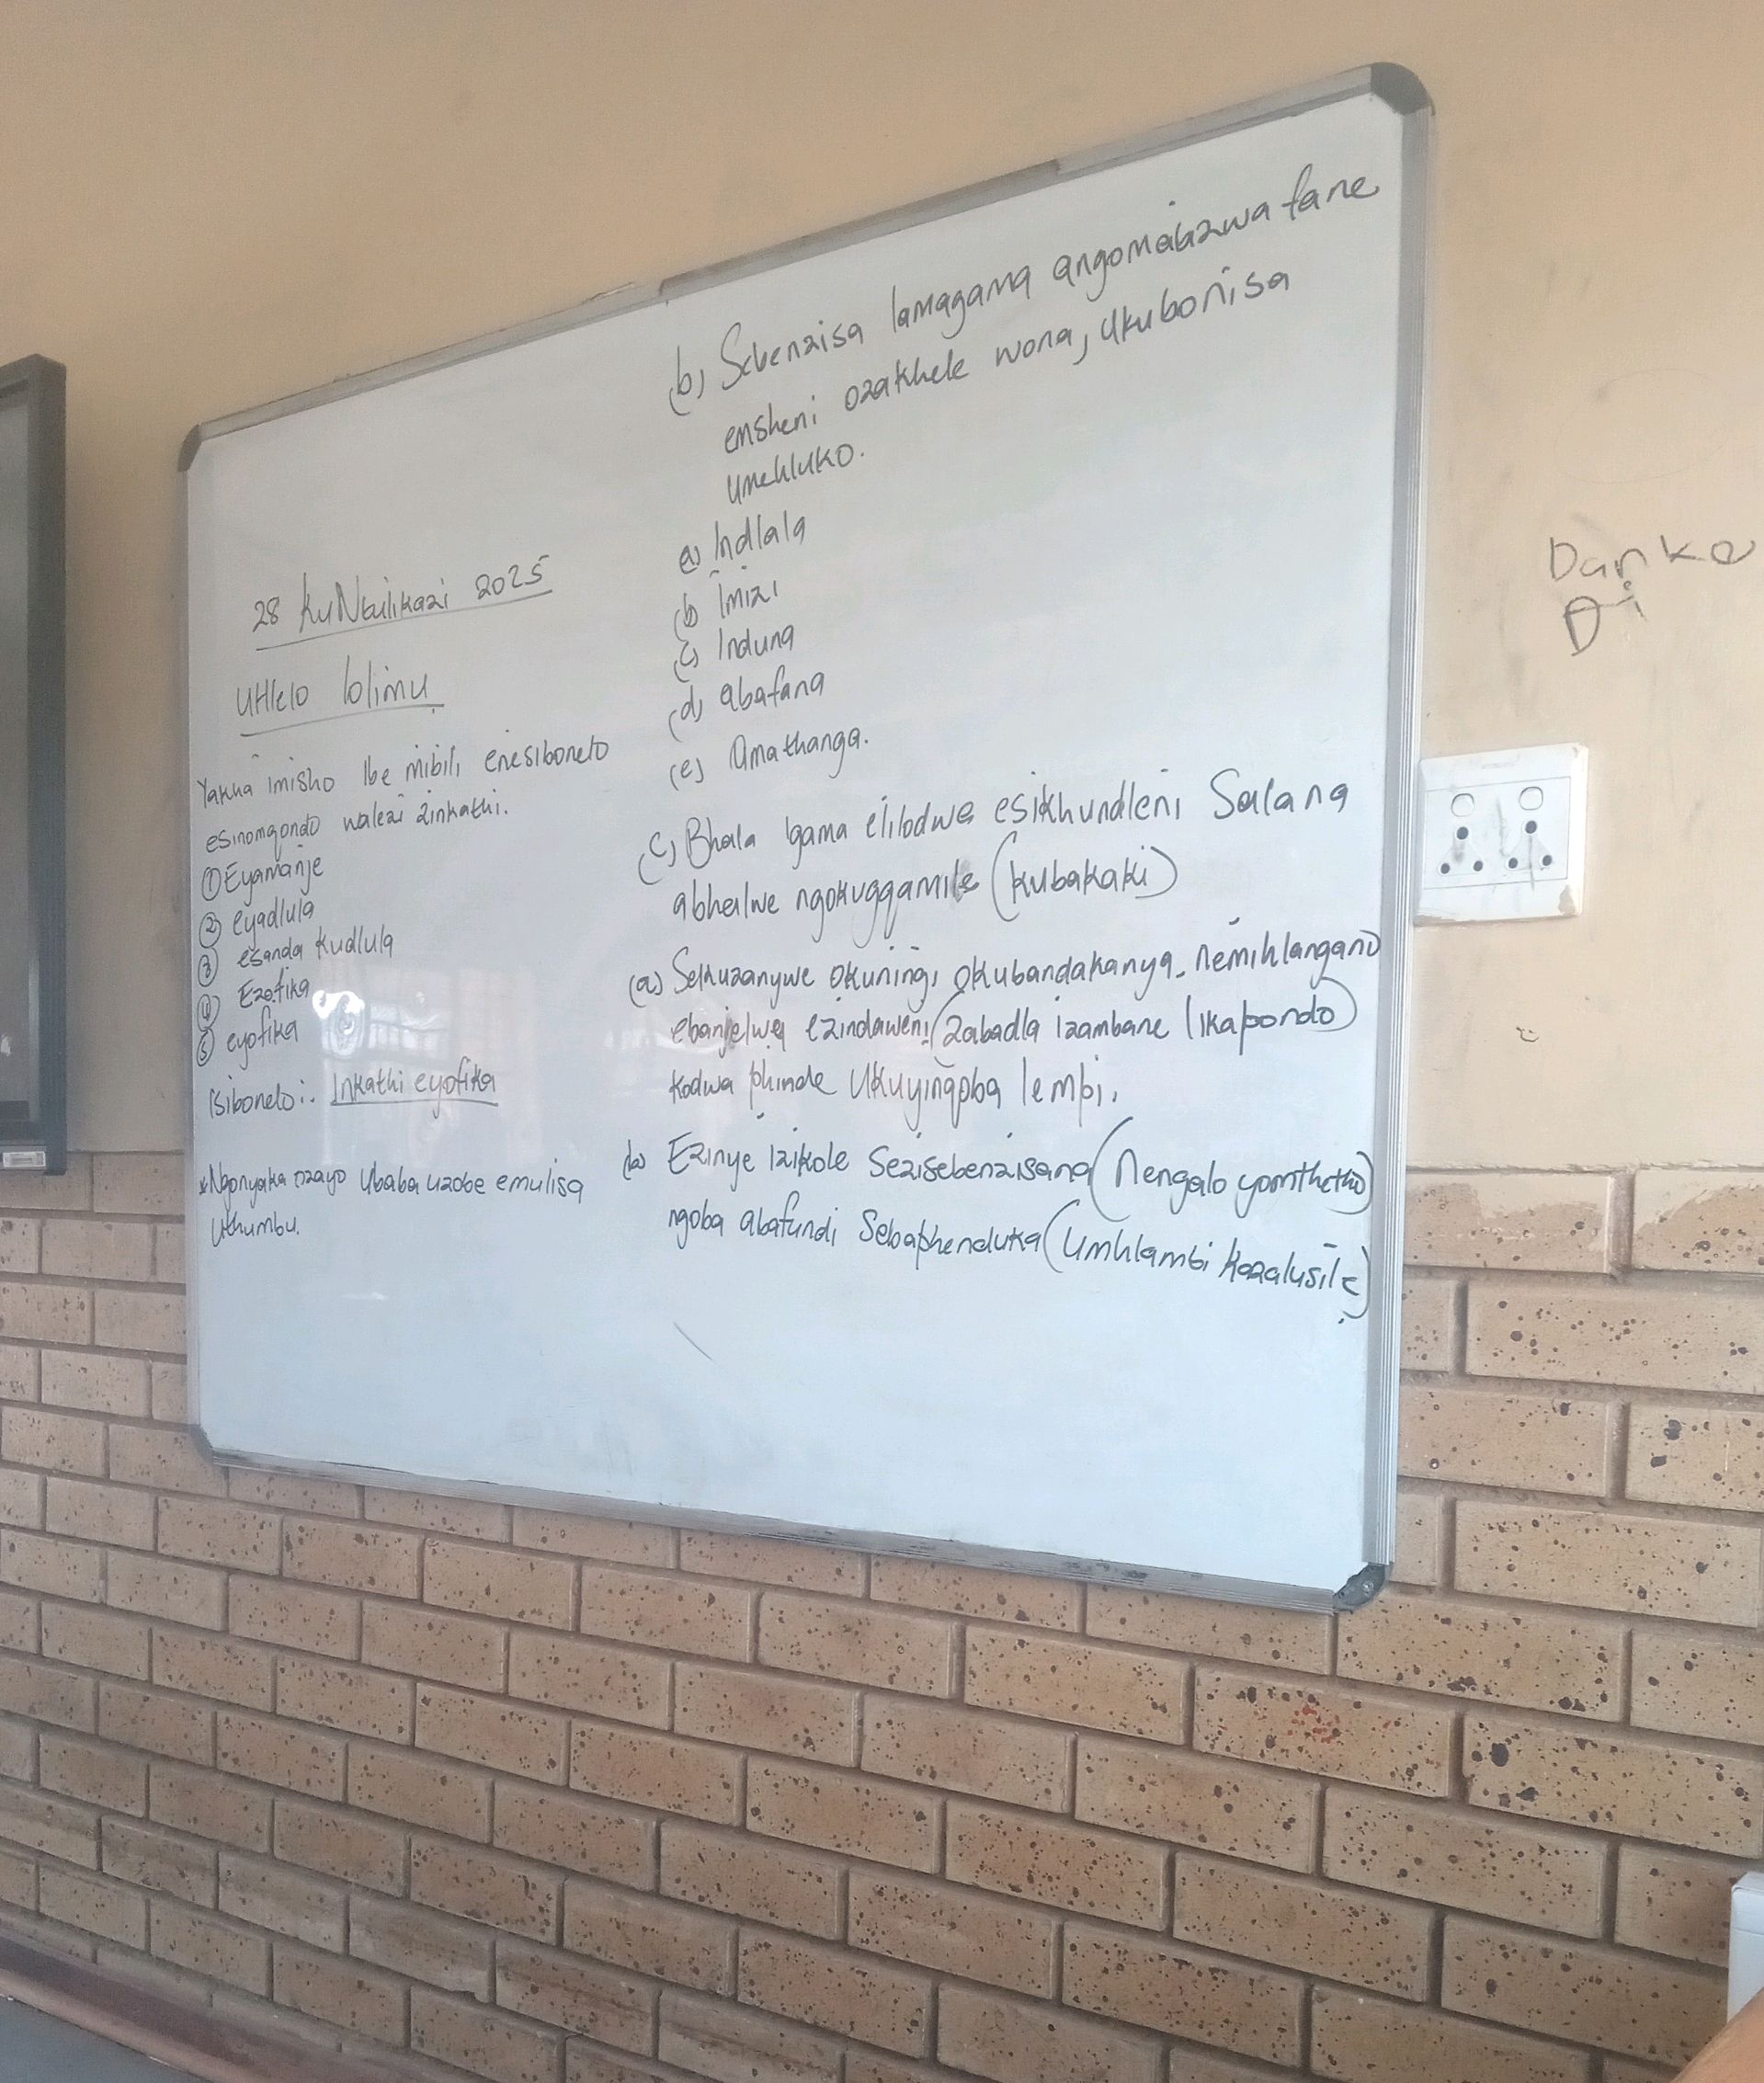 28 KuNtulikazi 2025
UHlelo lolimi
Yakha imisho ibe mibili enesibonelo
esinomqondo walezi zinkathi.
① Eyamanje
② eyadlula
③ esanda kudlula
④ Ezofika
⑤ eyofika
Isibonelo:. Inkathi eyofika
*Ngonyaka ozayo Ubaba uzobe emulisa
Uthumbu.
(b) Sebenzisa lamagama angomabizwa fane
emsheni ozakhele wona, Ukubonisa
Umehluko.
(a) Indlala
(b) Imizi
(c) Induna
(d) abafana
(e) Amathanga.
(c) Bhala igama elilodwa esikhundleni Salana
abhalwe ngokugqamile (kubakaki)
(a) Sekuzanywe okuningi okubandakanya nemihlangano
ebanjelwa ezindaweni (zabadla izambane likapondo)
kodwa phinde Ukuyinqoba lempi.
(b) Ezinye izikole Sezisebenzisana (Nengalo yomthetho)
ngoba abafundi Sebaphenduka (Umhlambi kazalusile)
Danke
Di